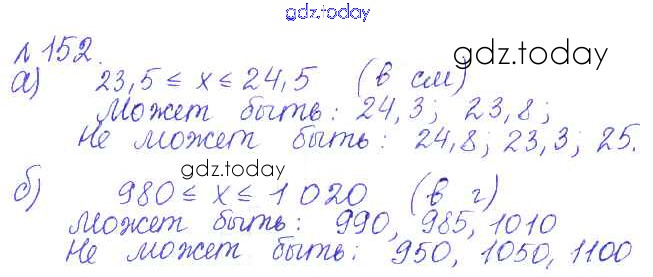 gdz.today
№ 152.
gdz.today
а) 23,5 ≤ x ≤ 24,5 (в см)
Может быть: 24,3; 23,8;
Не может быть: 24,8; 23,3; 25.
gdz.today
б) 980 ≤ x ≤ 1 020 (в г)
Может быть: 990, 985, 1010
Не может быть: 950, 1050, 1100